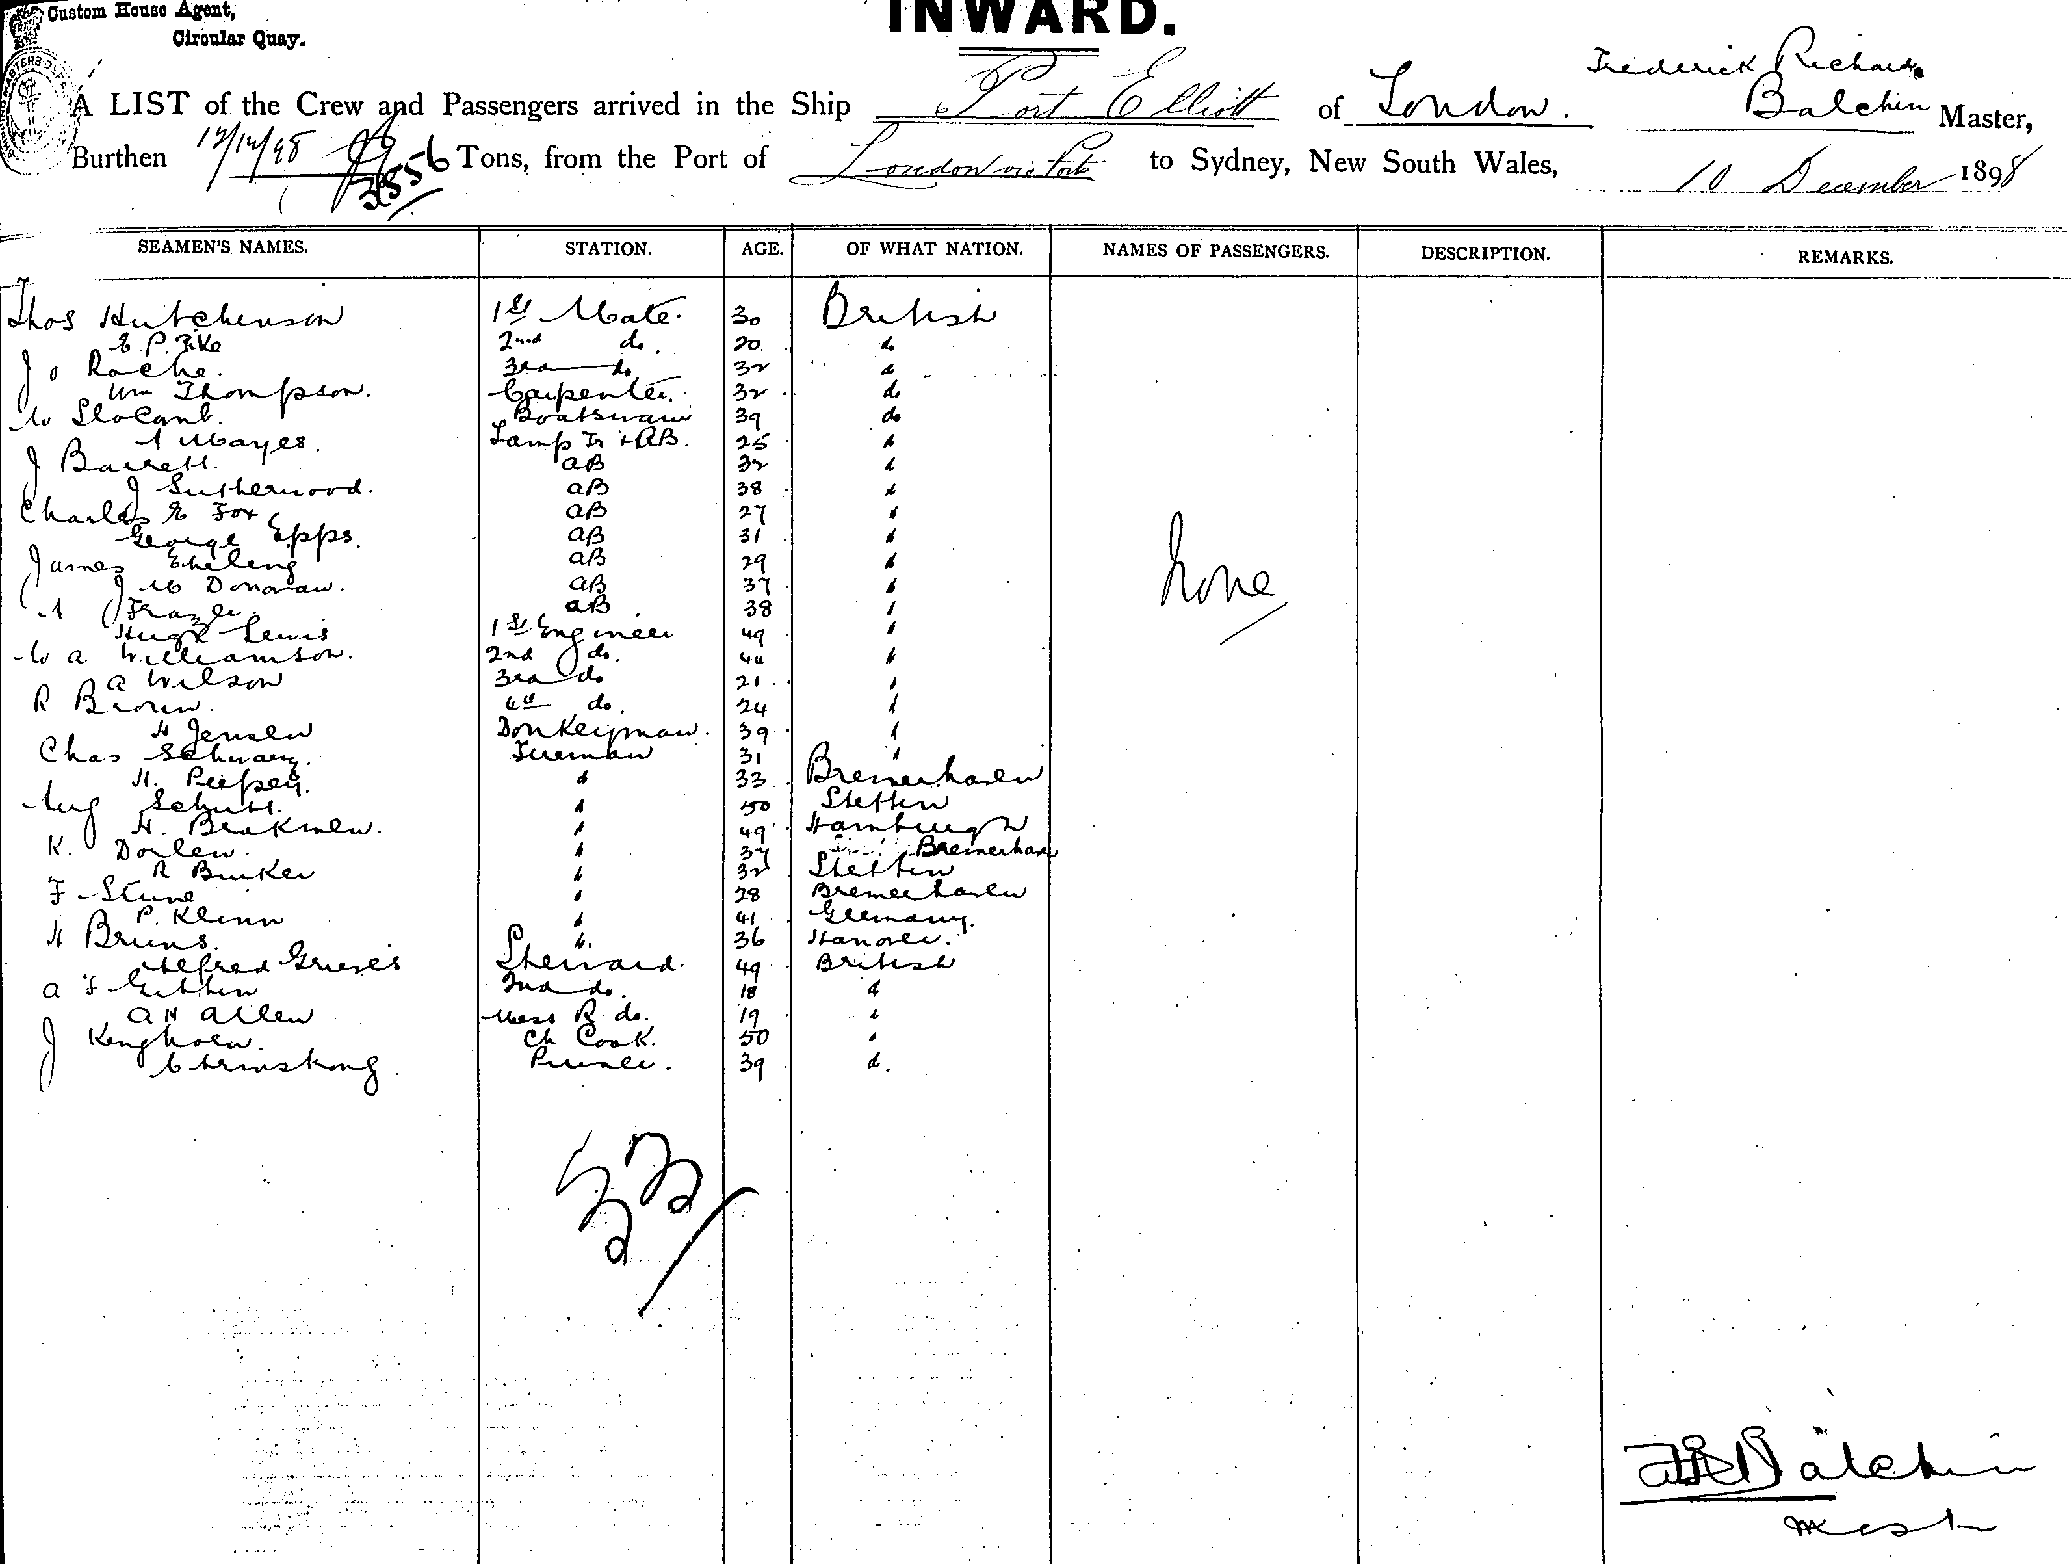 Custom House Agent,
Circular Quay.
INWARD.
Frederick Richard
A LIST of the Crew and Passengers arrived in the Ship Port Elliott of London. Balchin Master,
Burthen 12/12/98 2856 Tons, from the Port of London via Ports to Sydney, New South Wales, 10 December 1898
SEAMEN'S NAMES. STATION. AGE. OF WHAT NATION. NAMES OF PASSENGERS. DESCRIPTION. REMARKS.
Thos Hutchenson 1st Mate. 30 British
E P. 2nd do. 20 "
J O Roche. 3rd do 32 "
Wm Thompson. Carpenter. 32 do
W Slocomb. Boatswain 39 do
A Mayes. Lamp Tr + AB. 25 "
J Barrett. AB 32 "
J Sutherwood. AB 38 "
Charles E Fox AB 27 "
George Epps. AB 31 "
James Ebeling AB 29 "
J Mc Donovan. AB 37 "
A Frazer AB 38 "
none
Hugh Lewis 1st Engineer 49 "
W A Williamson. 2nd do. 44 "
A Wilson 3rd do 21 "
R Brown. 4th do. 24 "
H Jensen Donkeyman. 39 "
Chas Schwarz. Fireman 31 "
H. " 33 Bremerhaven
Aug Schutt. " 50 Stettin
H. Brakmen. " 49 Hamburgh
K. Dorlen. " 37 Bremerhaven
R Bunker " 32 Stettin
F Stune " 28 Bremerhaven
P. Klinn " 41 Germany.
H Bruns. " 36 Hanover.
Alfred Grieves Steward. 49 British
A F Gibbin 2nd do. 18 "
A H Allen Mess R do. 19 "
J Kenghorn. Ch Cook. 50 "
C Armstrong. Purser. 39 "
32
Balchin
Mast